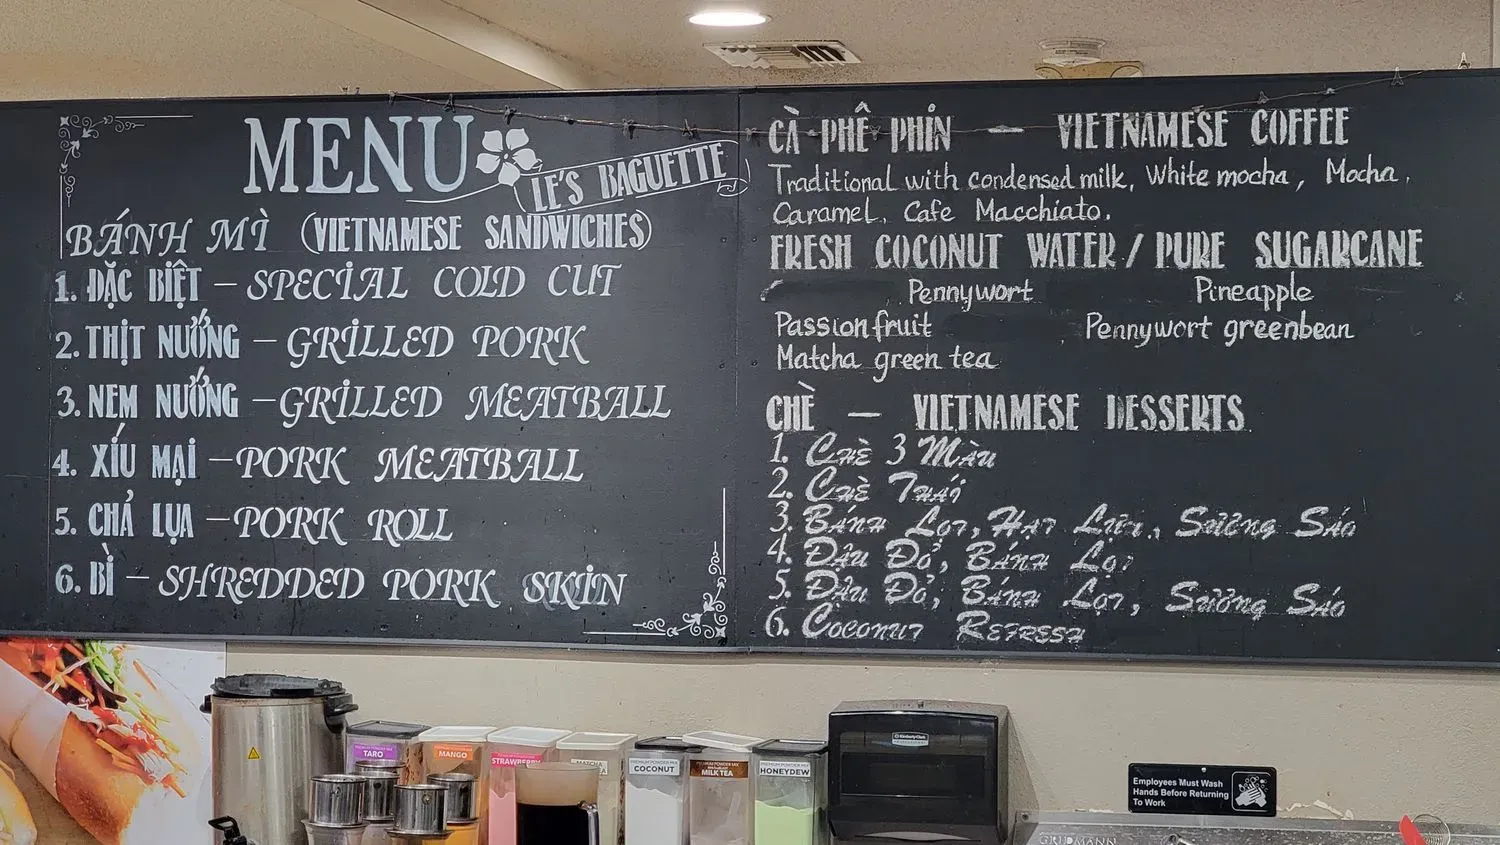 MENU
LE'S BAGUETTE
BÁNH MÌ (VIETNAMESE SANDWICHES)
1. ĐẶC BIỆT – SPECIAL COLD CUT
2. THỊT NƯỚNG – GRILLED PORK
3. NEM NƯỚNG – GRILLED MEATBALL
4. XÍU MẠI – PORK MEATBALL
5. CHẢ LỤA – PORK ROLL
6. BÌ – SHREDDED PORK SKIN
CÀ PHÊ PHIN – VIETNAMESE COFFEE
Traditional with condensed milk, White mocha, Mocha,
Caramel, Cafe Macchiato.
FRESH COCONUT WATER / PURE SUGARCANE
Pennywort Pineapple
Passion fruit Pennywort greenbean
Matcha green tea
CHÈ – VIETNAMESE DESSERTS
1. CHÈ 3 MÀU
2. CHÈ THÁI
3. BÁNH LỌT, HẠT LỰU, SƯƠNG SÁO
4. ĐẬU ĐỎ, BÁNH LỌT
5. ĐẬU ĐỎ, BÁNH LỌT, SƯƠNG SÁO
6. COCONUT REFRESH
TARO
MANGO
STRAWBERRY
MATCHA
COCONUT
MILK TEA
HONEYDEW
Kimberly-Clark
Employees Must Wash
Hands Before Returning
To Work
GRINDMANN